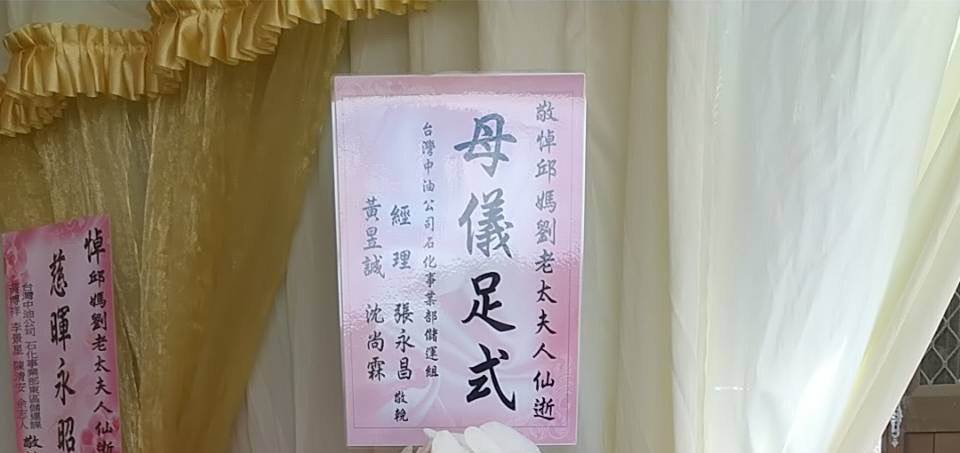 敬悼邱媽劉老太夫人仙逝
母儀足式
台灣中油公司石化事業部儲運組
經理 張永昌 敬輓
黃昱誠 沈尚霖
悼邱媽劉老太夫人仙逝
慈暉永昭
台灣中油公司石化事業部東區儲運課
李景星 陳清安
敬